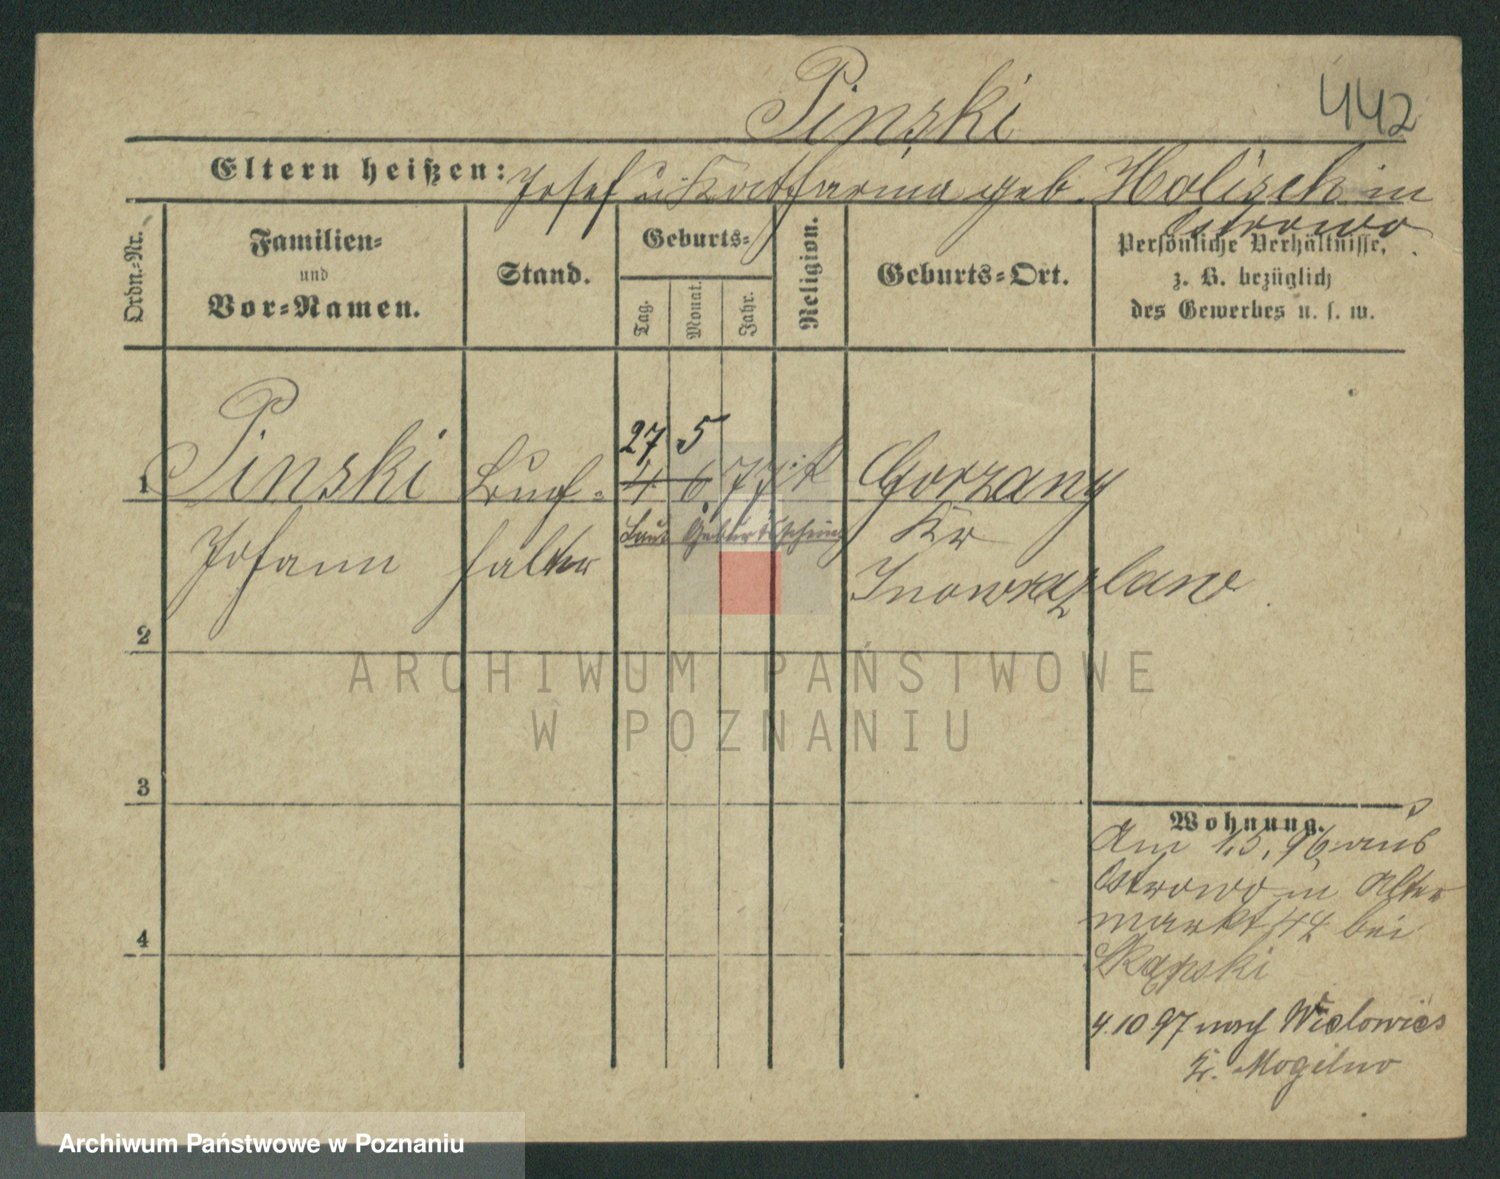 Pinski
442
Eltern heißen: Josef u. Katharina geb. Holisch in
Ostrowo
Ordn.-Nr.
Familien-
und
Vor-Namen.
Stand.
Geburts-
Tag.
Monat.
Jahr.
Religion.
Geburts-Ort.
Persönliche Verhältnisse,
z. B. bezüglich
des Gewerbes u. s. w.
27 5
1 Pinski Buch- 4 6 77 k Gorzany
Laut Geburtsschein
Johann halter Kr
Inowrazlaw
2
3
4
Wohnung.
Am 1.5.96 aus
Ostrowo in Alter
markt 44 bei
Skąpski
4.10 97 nach Wielowies
Kr. Mogilno
ARCHIWUM PAŃSTWOWE
W POZNANIU
Archiwum Państwowe w Poznaniu